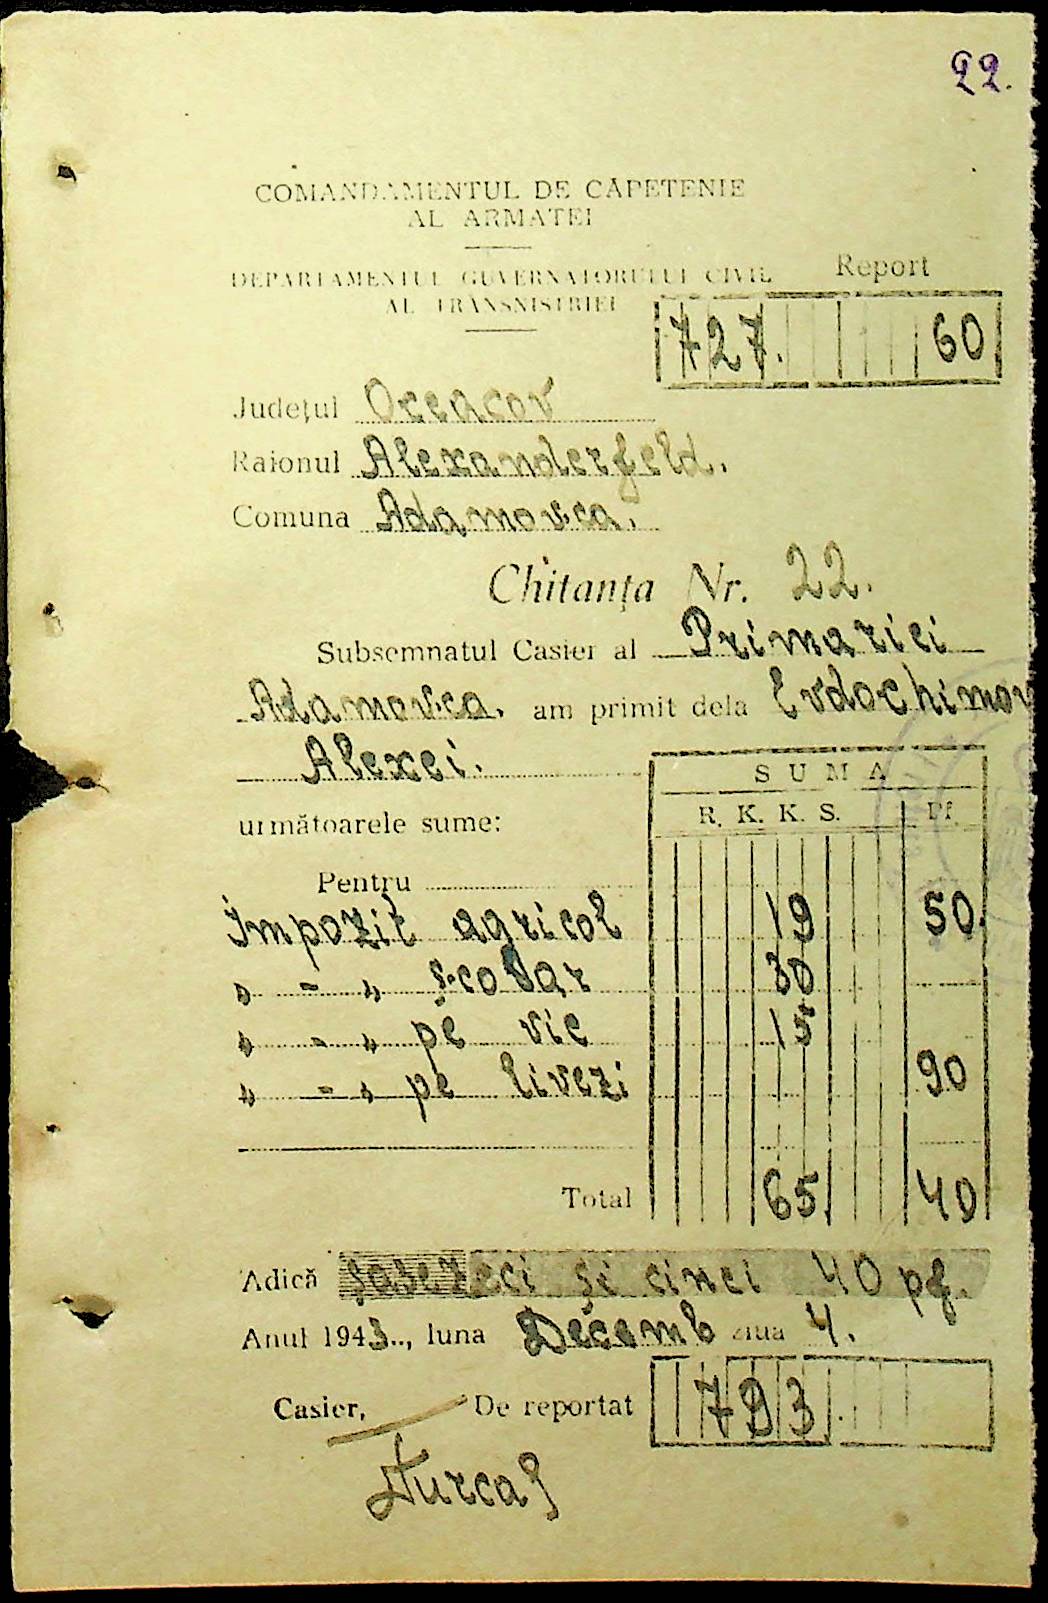 22.
COMANDAMENTUL DE CĂPETENIE
AL ARMATEI
DEPARTAMENTUL GUVERNATORULUI CIVIL
AL TRANSNISTRIEI
Report
727. 60
Judeţul Oceacov
Raionul Alexanderfeld.
Comuna Adamovca.
Chitanţa Nr. 22.
Subsemnatul Casier al Primariei
Adamovca. am primit dela Evdochimov
Alexei.
următoarele sume:
SUMA
R. K. K. S. Pf.
Pentru
Impozit agricol 19 50.
" - " şcolar 30
" - " pe vie 15
" - " pe livezi 90
Total 65. 40
Adică şasezeci şi cinci 40 pf.
Anul 1943.., luna Decemb ziua 4.
Casier, De reportat 793.
Turcaş